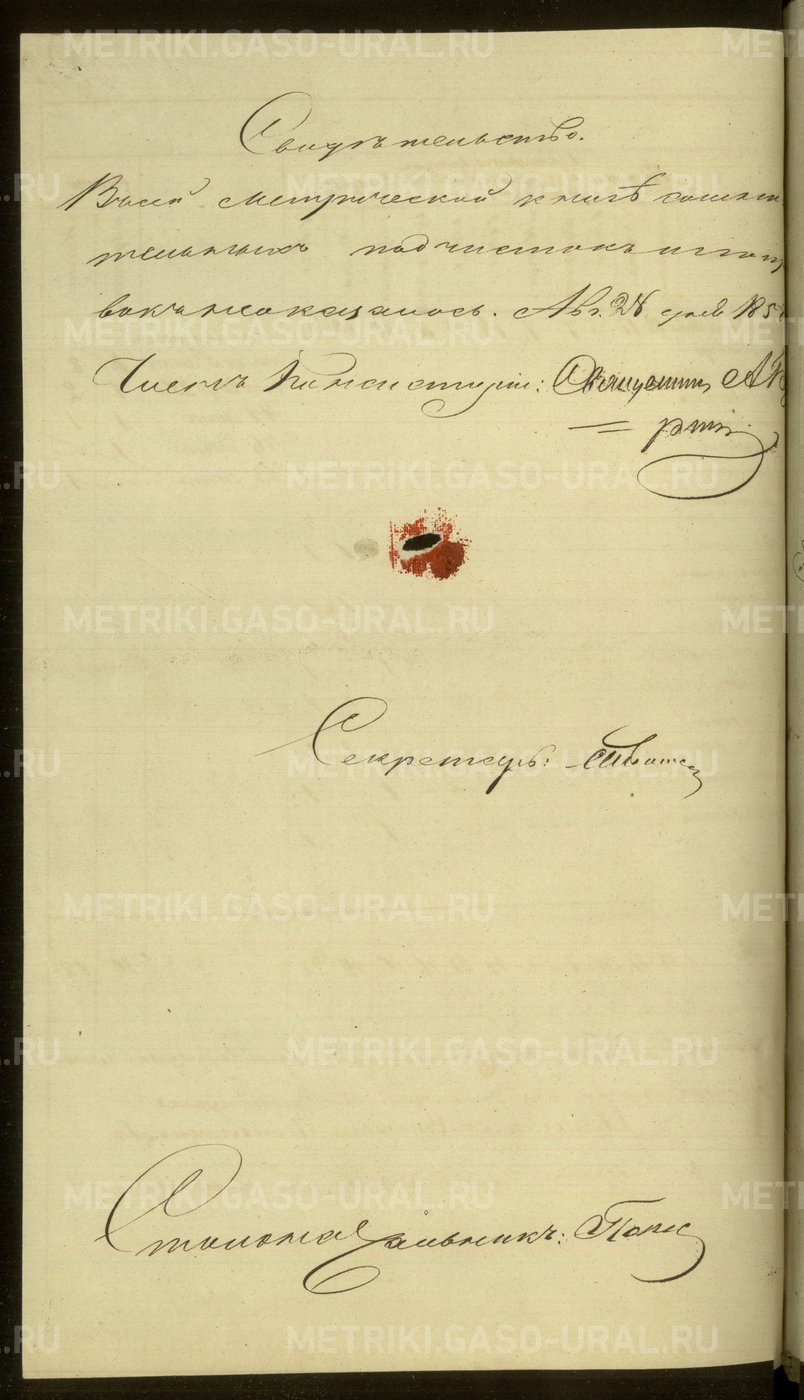 Свидѣтельство.
Въ сей метрической книгѣ сомни
тельныхъ подчистокъ и попр
вокъ не оказалось. Авг. 28 дня 185
Членъ Консисторіи: Священникъ
Секретарь:
Столоначальникъ: Попо
METRIKI.GASO-URAL.RU